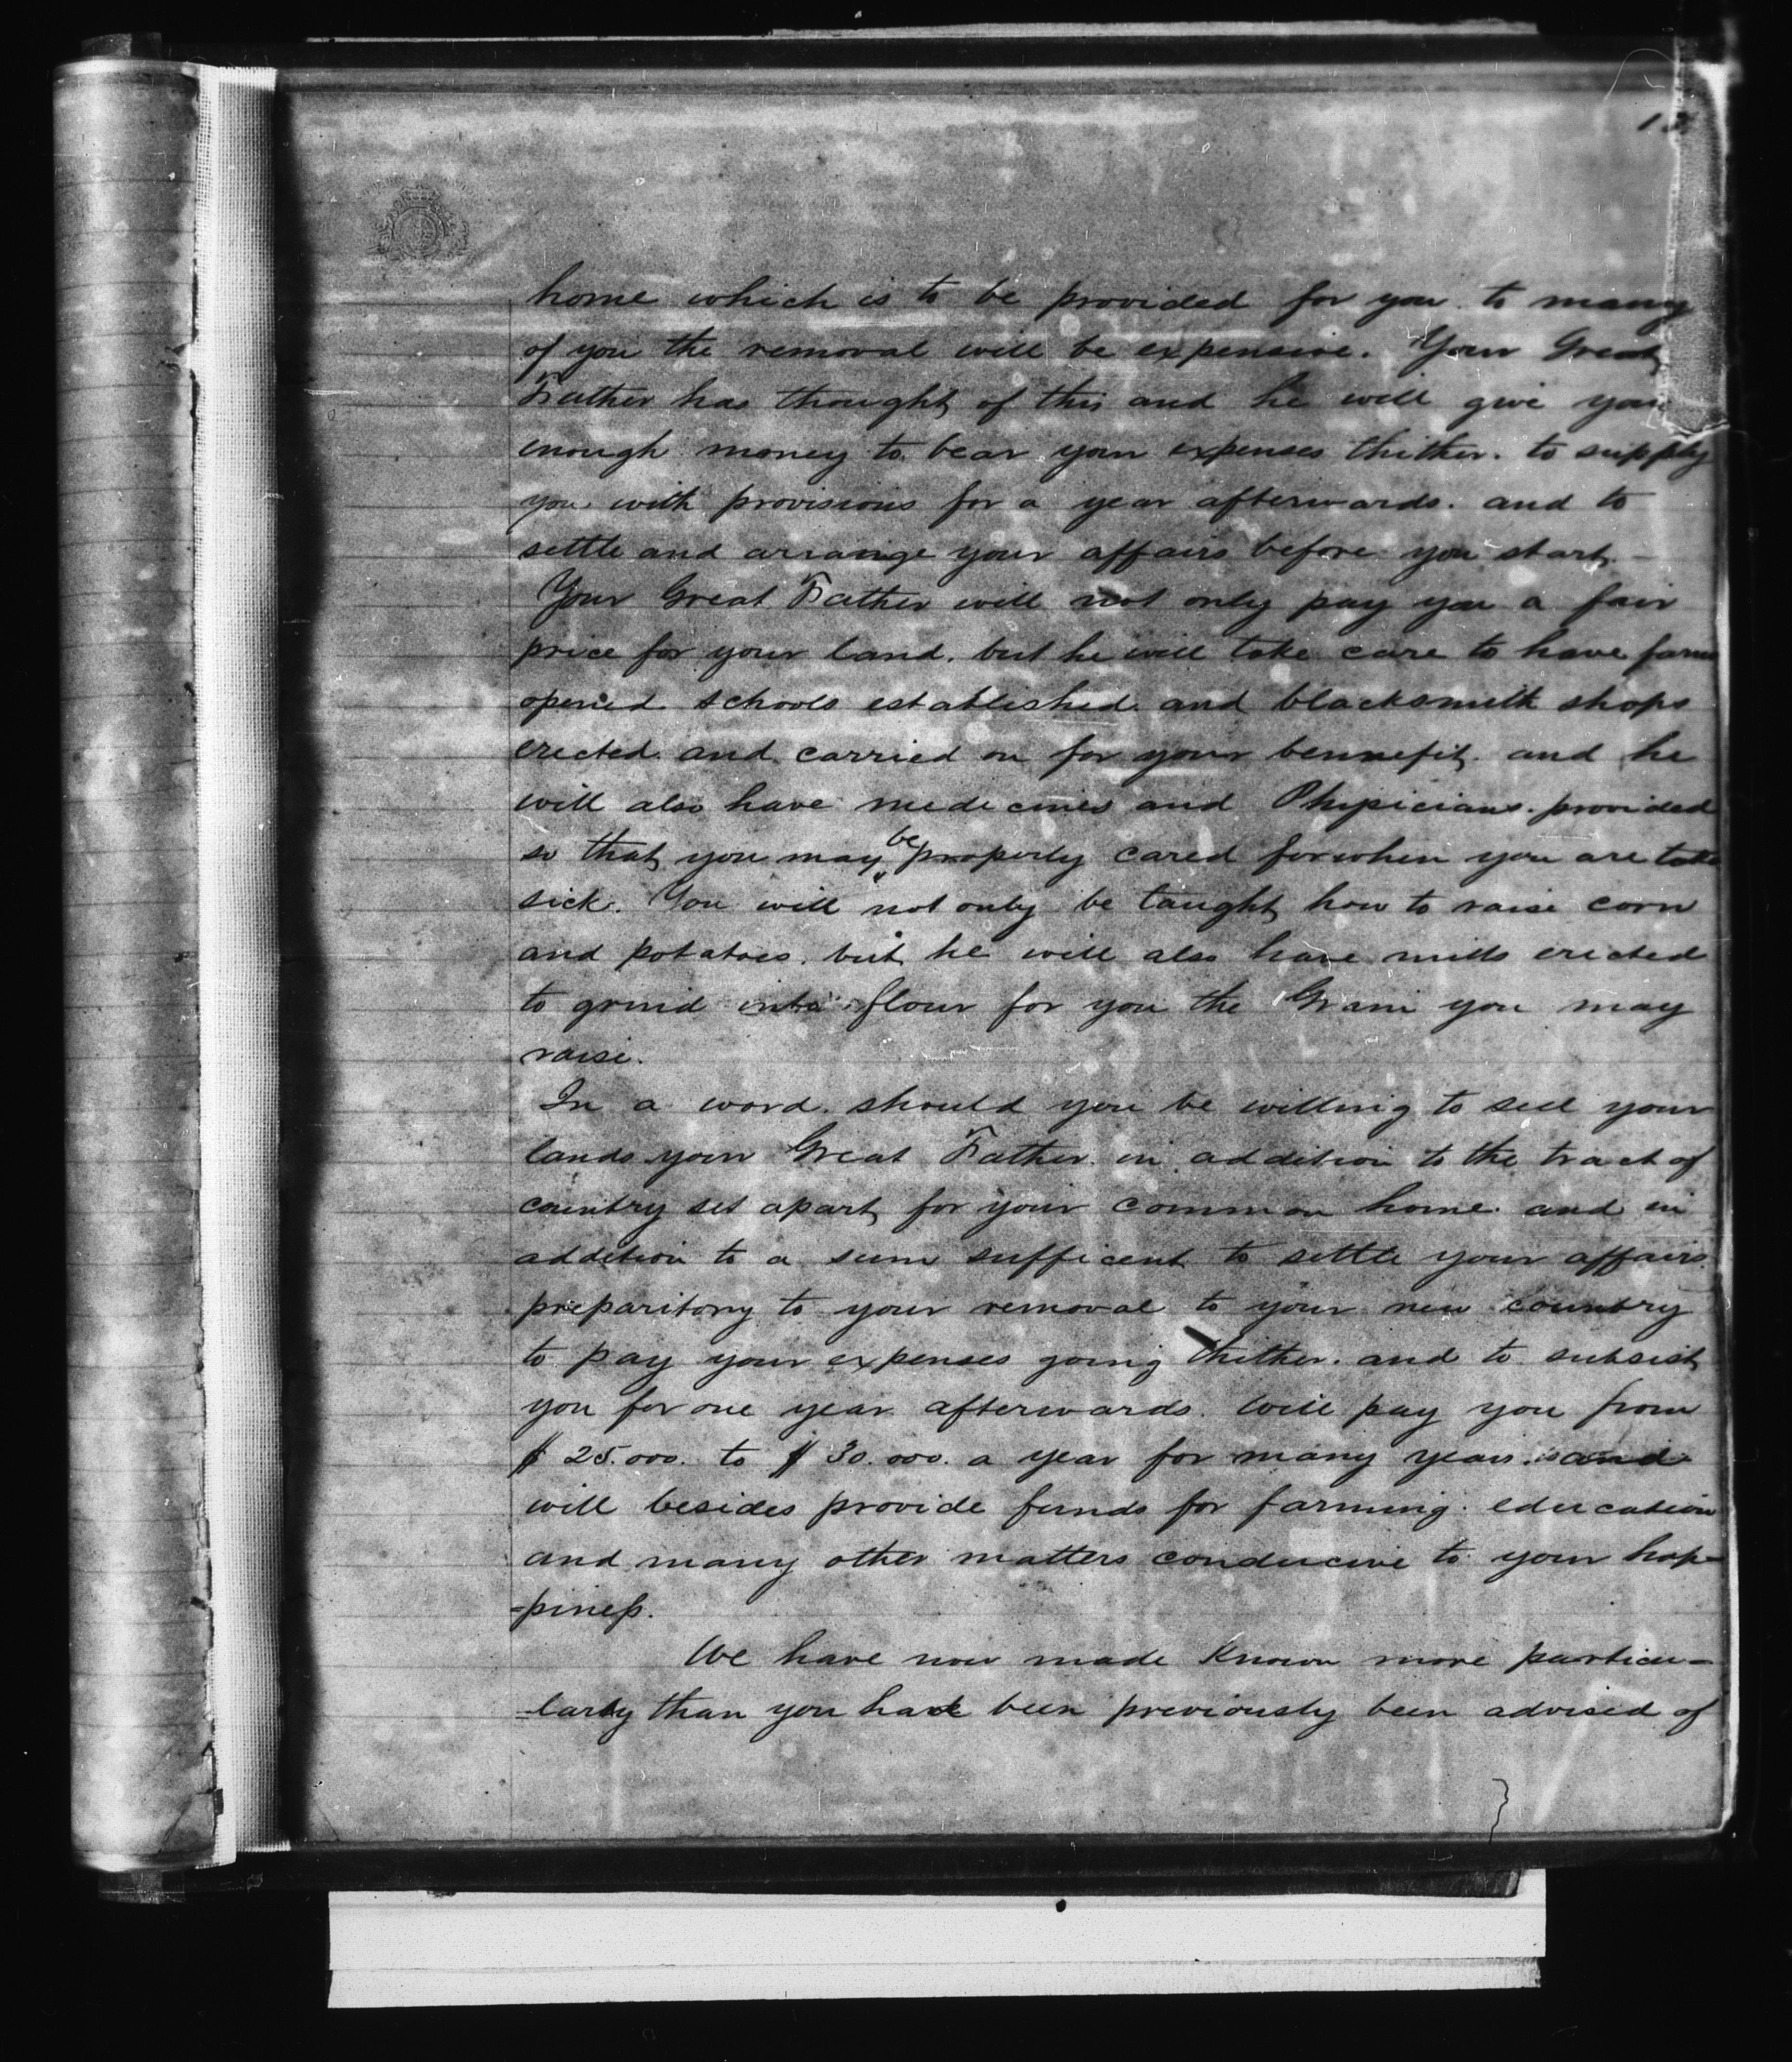 home which is to be provided for you to many
of you the removal will be expensive. Your Great
Father has thought of this and he will give you
enough money to bear your expenses thither. to supply
you with provisions for a year afterwards. and to
settle and arrange your affairs before you start –
Your Great Father will not only pay you a fair
price for your land. but he will take care to have farms
opened schools established and blacksmith shops
erected and carried on for your bennefit. and he
will also have medicines and Physicians provided
so that you may be properly cared for when you are
sick. You will not only be taught how to raise corn
and potatoes. but he will also have mills erected
to grind into flour for you the Grain you may
raise.
In a word. should you be willing to sell your
lands your Great Father in addition to the tract of
country set apart for your common home. and in
addition to a sum sufficent to settle your affairs.
preparitory to your removal to your new country
to pay your expenses going thither. and to subsist
you for one year afterwards. will pay you from
$ 25.000. to $ 30.000. a year for many years. and
will besides provide funds for farming. education
and many other matters conducive to your hap-
-piness.
We have now made Known more particu-
-larly than you have been previously been advised of